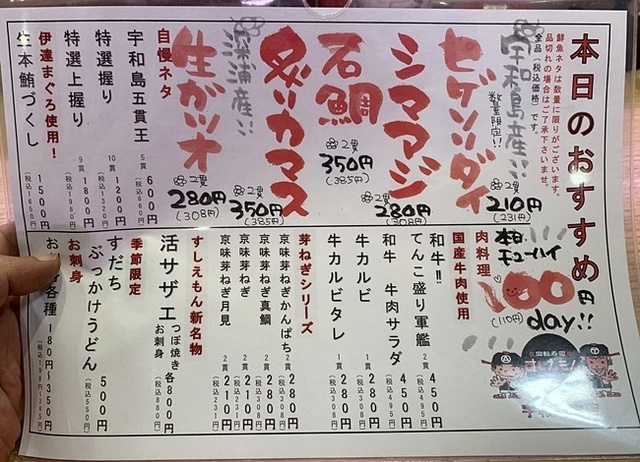 本日のおすすめ
鮮魚ネタは数量に限りがございます。
品切れの場合はご了承下さいませ。
全品(税込価格)です。
宇和島産!!
セダンダイ
数量限定!!
2貫
210円
(231円)
シマアジ
2貫
280円
(308円)
石鯛
2貫
350円
(385円)
炙りカマス
2貫
350円
(385円)
深浦産!!
生ガツオ
2貫
280円
(308円)
自慢ネタ
宇和島五貫王 5貫 600円 (税込660円)
特選握り 10貫 1200円 (税込1320円)
特選上握り 9貫 1800円 (税込1980円)
伊達まぐろ使用!
生本鮪づくし 1500円 (税込1650円)
本日
チューハイ
100円
(110円)
day!!
回転寿司
すしえもん
肉料理
国産牛肉使用
和牛!!
てんこ盛り軍艦 2貫 450円
和牛 牛肉サラダ 450円
牛カルビ 1貫 280円
牛カルビタレ 1貫 280円
芽ねぎシリーズ
京味芽ねぎかんぱち 2貫 280円 (税込308円)
京味芽ねぎ真鯛 2貫 280円 (税込308円)
京味芽ねぎ 2貫 210円 (税込231円)
京味芽ねぎ月見 2貫 210円 (税込231円)
すしえもん新名物
活サザエ つぼ焼き お刺身 各800円 (税込880円)
季節限定
すだち
ぶっかけうどん 500円 (税込550円)
お刺身
各種 180円~350円
(税込198円~385円)